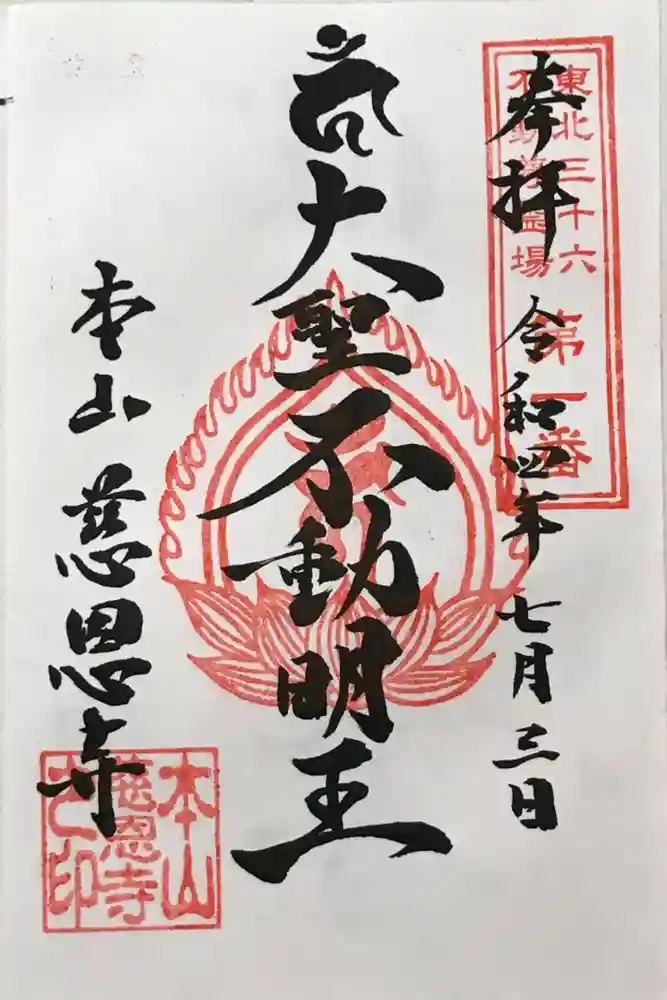 奉拝
令和四年七月三日
東北三十六
不動尊霊場
第一番
大聖不動明王
本山慈恩寺
本山
慈恩寺
之印